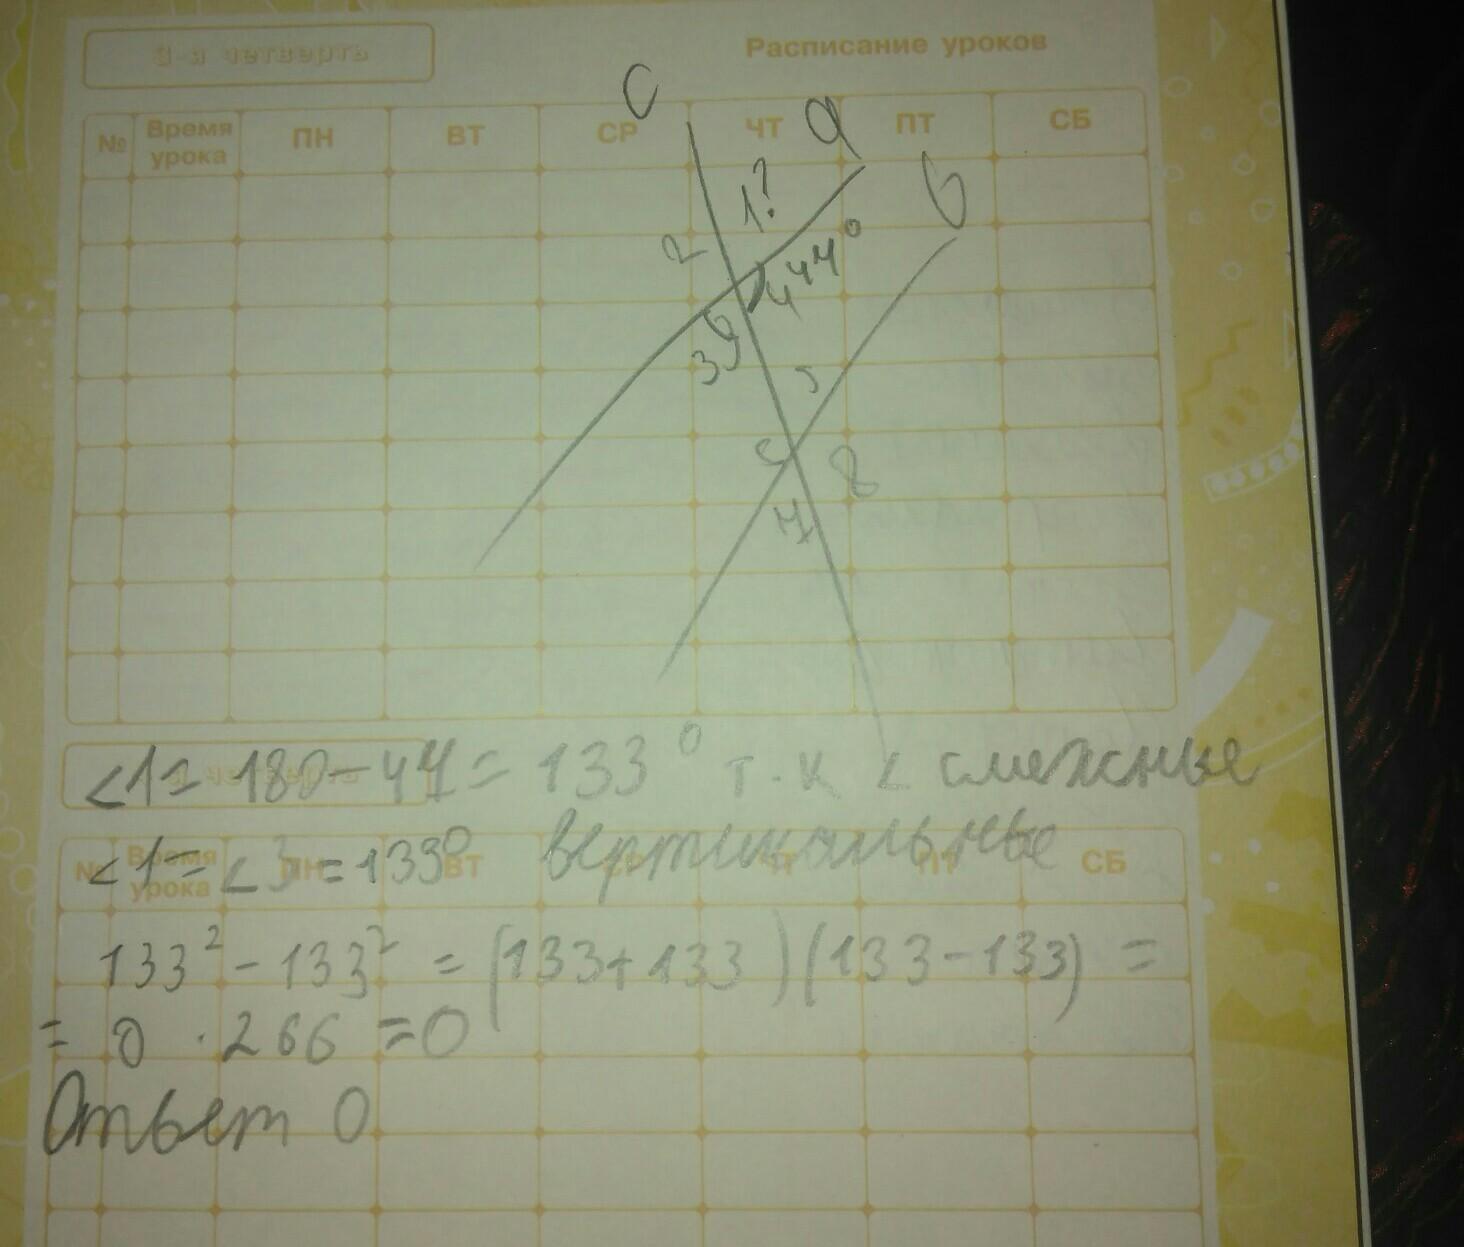 3-я четверть
Расписание уроков
№ Время урока ПН ВТ СР ЧТ ПТ СБ
c
a
b
1?
2
4 44°
3
5
8
7
<1= 180-47= 133° т.к < смежные
<1= <3 =133° вертикальные
№ Время урока ПН ВТ СР ЧТ ПТ СБ
133² - 133² = (133+133)(133-133) =
= 0 · 266 =0
Ответ 0